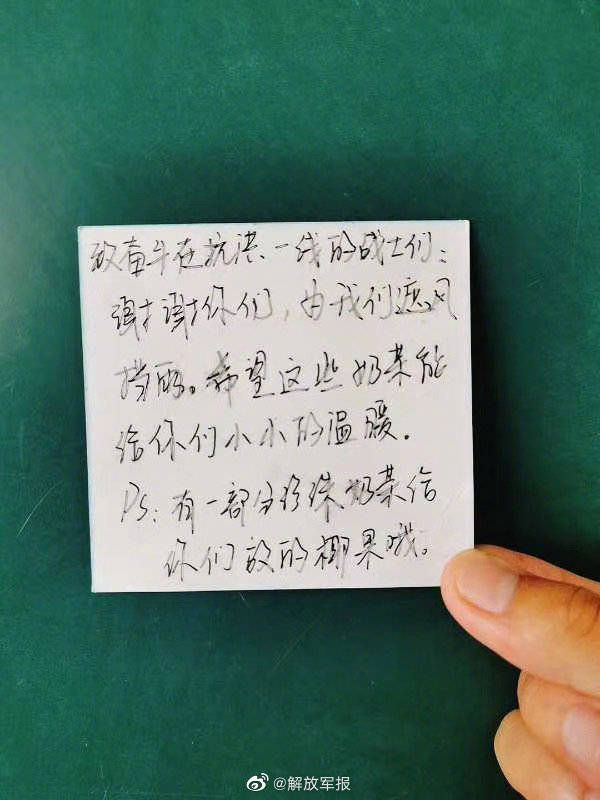 致奋斗在抗洪一线的战士们:
谢谢你们,为我们遮风
挡雨。希望这些奶茶能
给你们小小的温暖.
Ps:有一部分珍珠奶茶给
你们放的椰果哦。
@解放军报